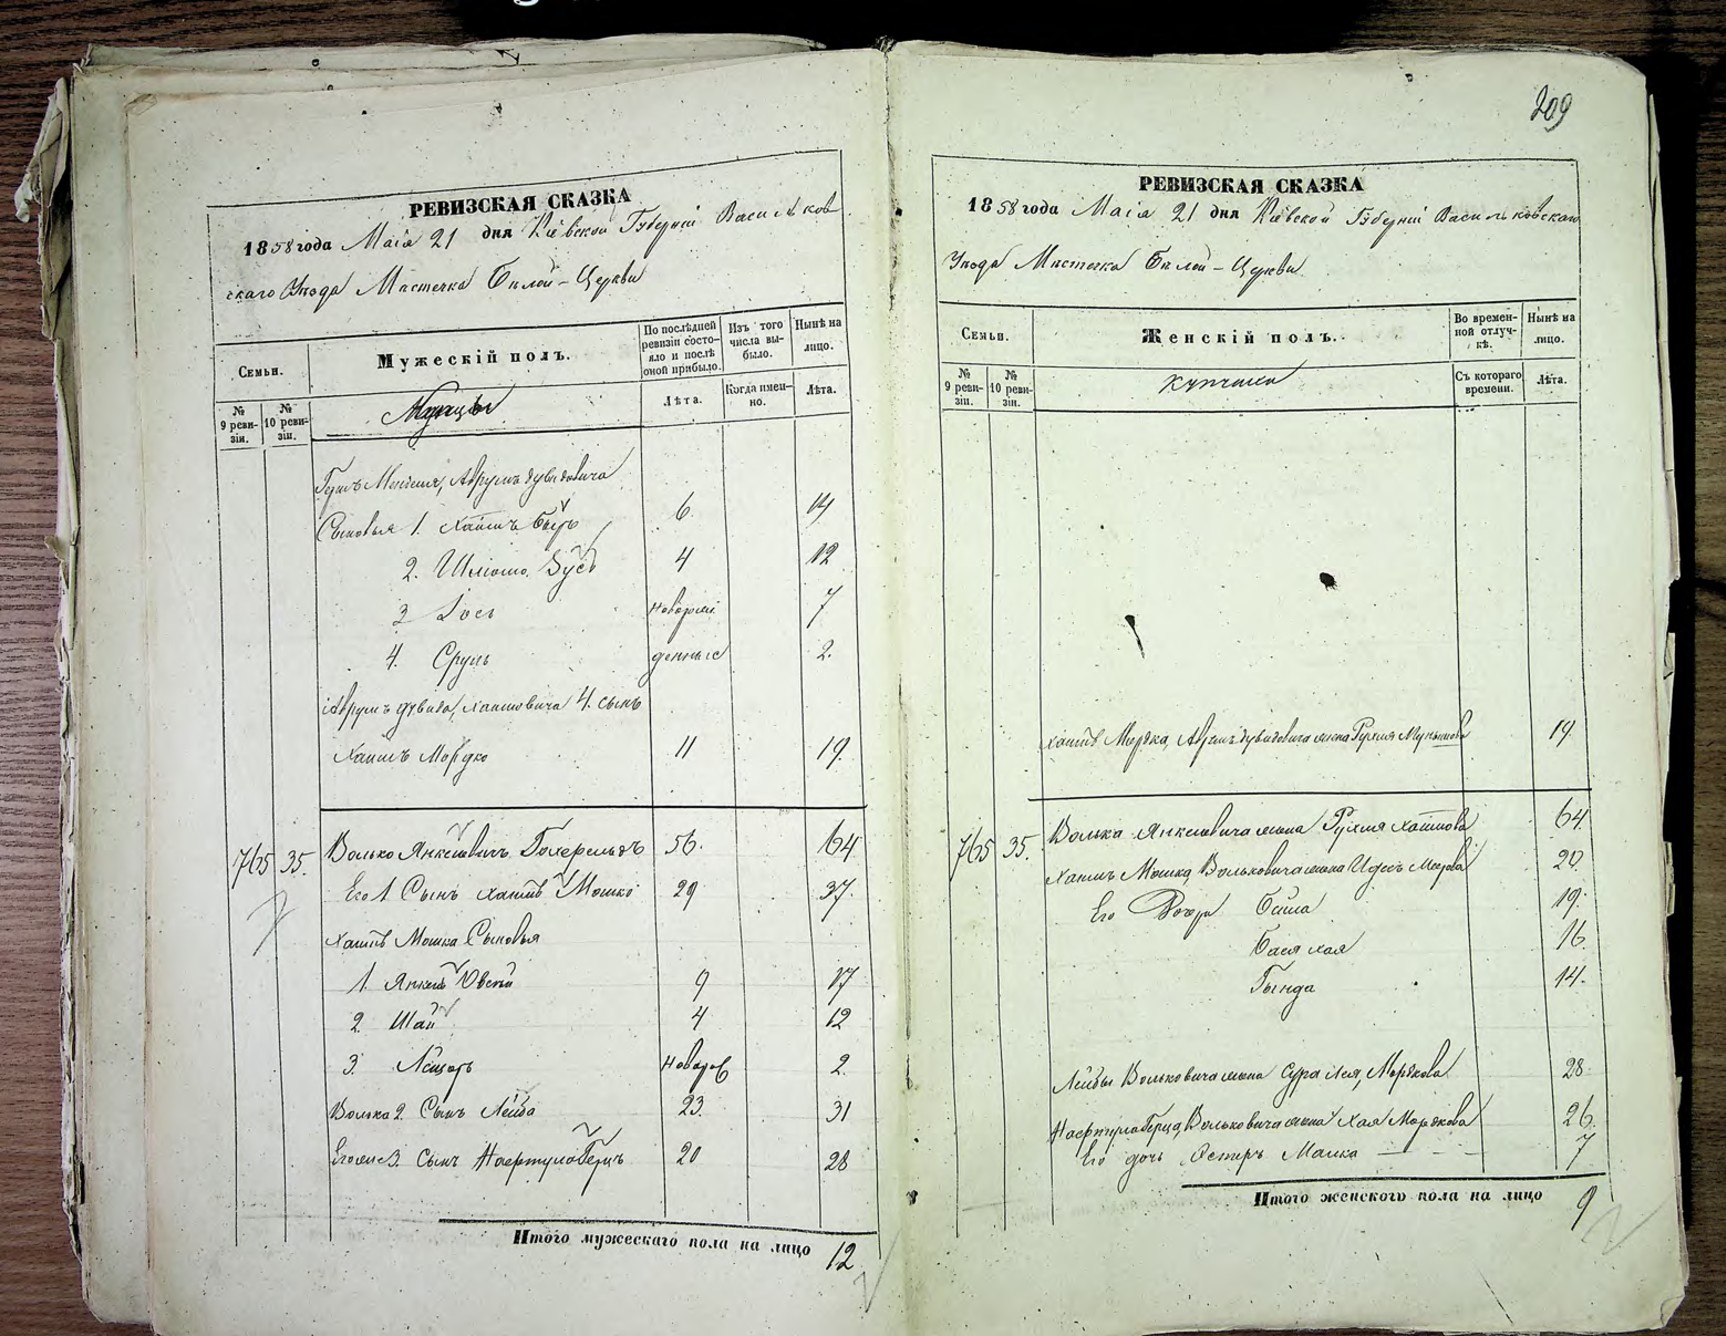 209
РЕВИЗСКАЯ СКАЗКА
1858 года Маія 21 дня Кіевской Губерніи Васильков
скаго Уѣзда Мѣстечка Бѣлой-Церкви
Семьи.
Мужескій полъ.
По послѣдней ревизіи состояло и послѣ оной прибыло.
Изъ того числа выбыло.
Нынѣ на лицо.
№ 9 ревизіи.
№ 10 ревизіи.
Купцы
Лѣта.
Когда именно.
Лѣта.
Аврумъ Дувидовича
Сыновья 1. Хаимъ Беръ 6. 14
2. Шлiомо Зусь 4 12
3 Іось новорож 7
4. Сруль денные 2.
Аврумъ Дувида, Хаимовича 4. сынъ
Хаимъ Мордко 11 19.
765 35. Волько Янкелевичъ 56. 64
Его 1 Сынъ Хаимъ Мошко 29 37.
Хаимъ Мошка Сыновья
1. Янкель Овсей 9 17
2. Шая 4 12
3. Лейзоръ новорож 2.
Волька 2. Сынъ Лейба 23. 31
Его же 3. Сынъ Герцъ 20 28
Итого мужескаго пола на лицо 12
РЕВИЗСКАЯ СКАЗКА
1858 года Маія 21 дня Кіевской Губерніи Васильковскаго
Уѣзда Мѣстечка Бѣлой-Церкви
Семьи.
Женскій полъ.
Во временной отлучкѣ.
Нынѣ на лицо.
№ 9 ревизіи.
№ 10 ревизіи.
Съ котораго времени.
Лѣта.
Хаимъ Мордка, Аврумъ Дувидовича жена Рухля 19.
765 35. Волька Янкелевича жена Рухля Хаимова 64.
Хаимъ Мошка, Вольковича жена Идесъ 20.
Его Дочери Бейла 19.
Бася Хая 16.
Гинда 14.
Лейбы Вольковича жена Сура Лея, Мордкова 28.
Герца, Вольковича жена Хая Мордкова 26.
Его дочь Естеръ Малка 7
Итого женскаго пола на лицо 9